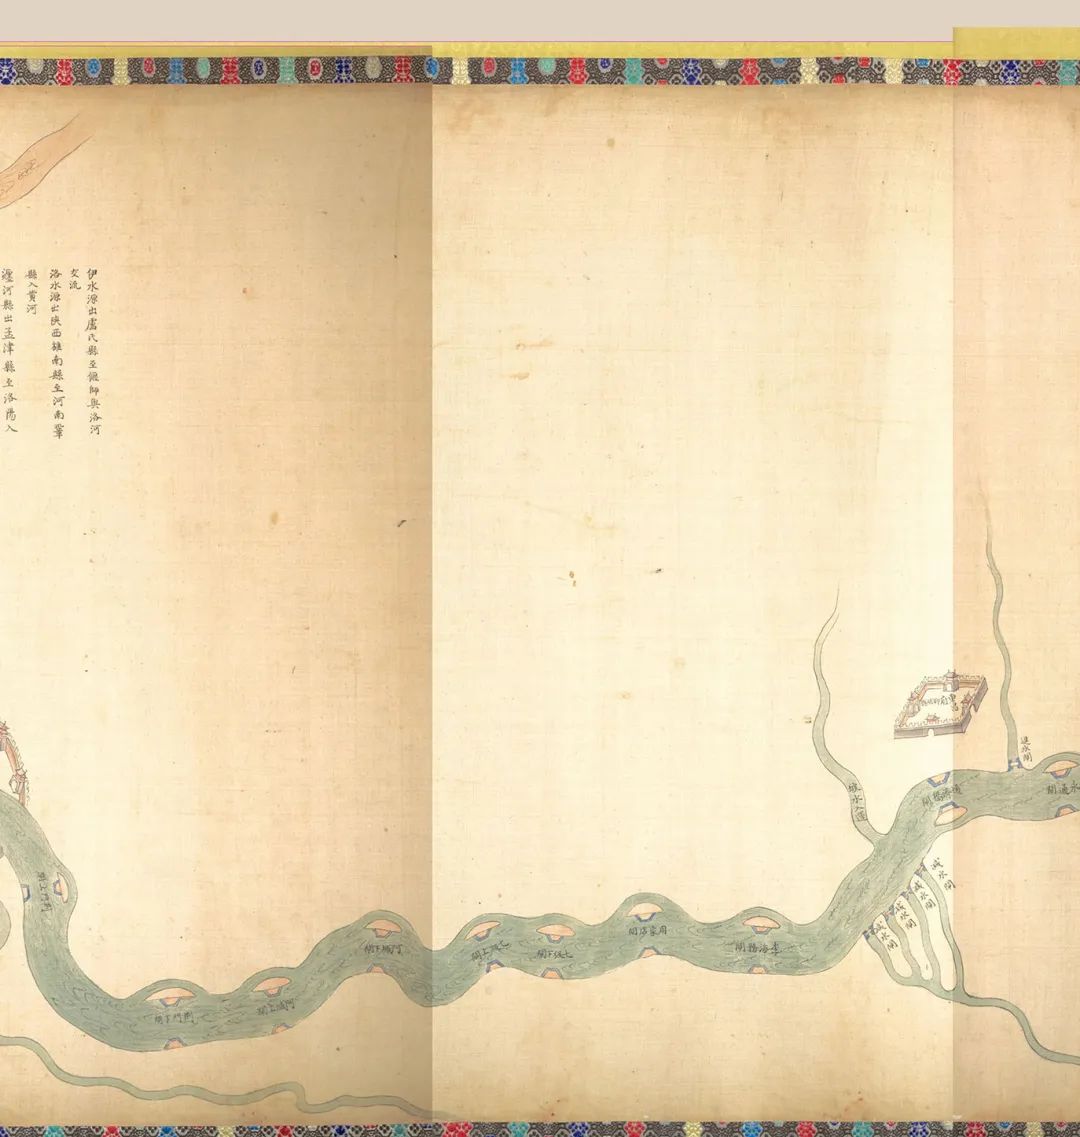 伊水源出盧氏縣至偃師與洛河
交流
洛水源出陝西雒南縣至河南鞏
縣入黃河
瀍河縣出孟津縣至洛陽入
進水閘
永通閘
通濟橋閘
坡水入運
減水閘
減水閘
減水閘
減水閘
李海務閘
周家店閘
七級下閘
七級上閘
阿城下閘
阿城上閘
荊門下閘